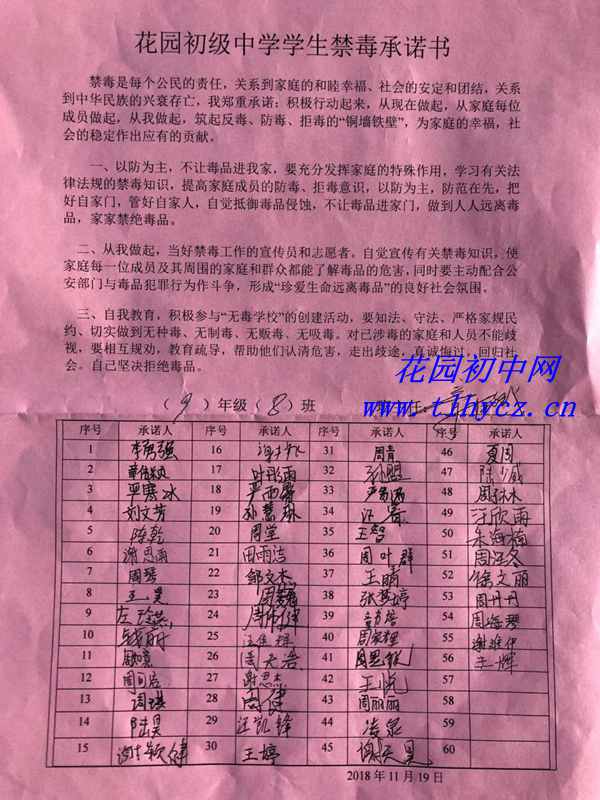 花园初级中学学生禁毒承诺书
禁毒是每个公民的责任，关系到家庭的和睦幸福、社会的安定和团结，关系
到中华民族的兴衰存亡，我郑重承诺：积极行动起来，从现在做起，从家庭每位
成员做起，从我做起，筑起反毒、防毒、拒毒的“铜墙铁壁”，为家庭的幸福，社
会的稳定作出应有的贡献。
一、以防为主，不让毒品进我家，要充分发挥家庭的特殊作用，学习有关法
律法规的禁毒知识，提高家庭成员的防毒、拒毒意识，以防为主，防范在先，把
好自家门，管好自家人，自觉抵御毒品侵蚀，不让毒品进家门，做到人人远离毒
品，家家禁绝毒品。
二、从我做起，当好禁毒工作的宣传员和志愿者。自觉宣传有关禁毒知识，使
家庭每一位成员及其周围的家庭和群众都能了解毒品的危害，同时要主动配合公
安部门与毒品犯罪行为作斗争，形成“珍爱生命远离毒品”的良好社会氛围。
三、自我教育，积极参与“无毒学校”的创建活动，要知法、守法、严格家规民
约、切实做到无种毒、无制毒、无贩毒、无吸毒。对已涉毒的家庭和人员不能歧
视，要相互规劝，教育疏导，帮助他们认清危害，走出歧途，真诚悔过，回归社
会。自己坚决拒绝毒品。
花园初中网
www.tlhycz.cn
（9）年级（8）班
序号 承诺人 序号 承诺人 序号 承诺人 序号 承诺人
1 16 31 周青 46 夏周
2 17 32 孙盟 47 陆少威
3 严寒冰 18 严雨露 33 48
4 刘文芳 19 孙慧琳 34 49 汪欣雨
5 陈乾 20 周堂 35 王智 50 朱海楠
6 谢思雨 21 田雨洁 36 周叶群 51
7 周琴 22 邹文杰 37 王丽 52 徐文丽
8 23 38 张梦婷 53 周丹丹
9 24 周伟健 39 54 周海琴
10 钱丽 25 40 55
11 26 周天浩 41 56 王辉
12 27 谢思杰 42 王悦 57
13 周琪 28 周健 43 周丽丽 58
14 陆昊 29 汪凯锋 44 凌泉 59
15 30 王婷 45 谢天昊 60
2018年11月19日